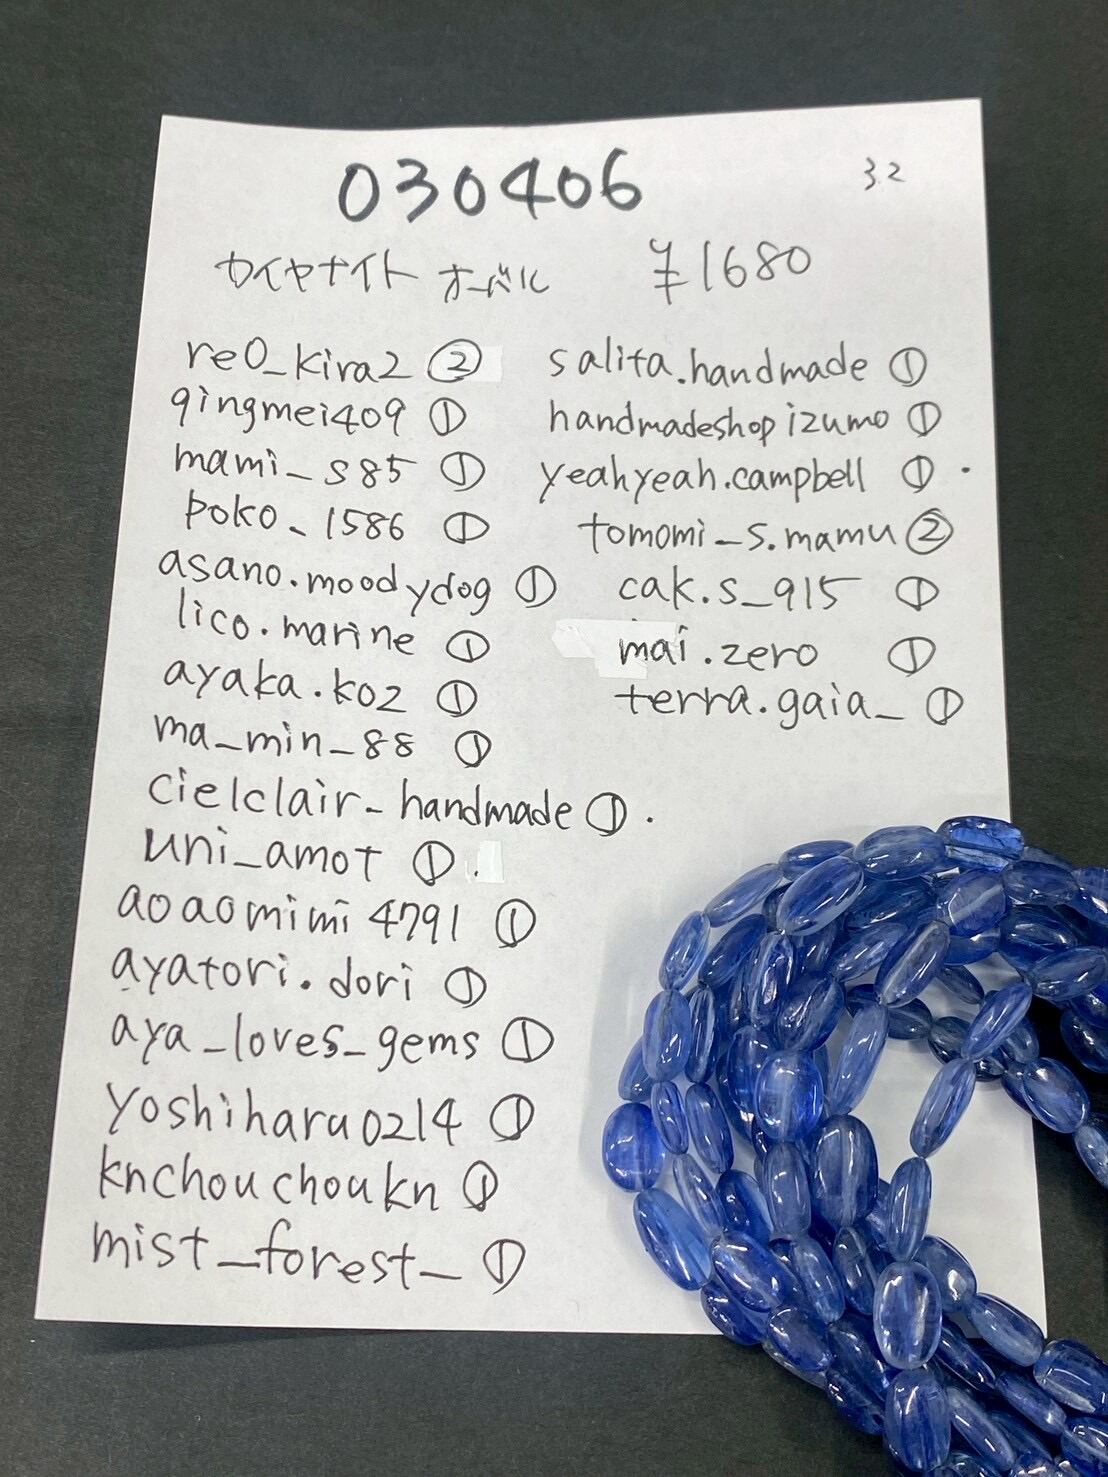 030406
3.2
カイヤナイト オーバル ¥1680
re0_kira2 ②
qingmei409 ①
mami_s85 ①
poko_1586 ①
asano.moodydog ①
lico.marine ①
ayaka.koz ①
ma_min_88 ①
cielclair_handmade ① .
uni_amot ① .
aoaomimi4791 ①
ayatori.dori ①
aya_loves_gems ①
yoshiharu0214 ①
knchouchoukn ①
mist_forest_ ①
salita.handmade ①
handmadeshopizumo ①
yeahyeah.campbell ① .
tomomi_s.mamu ②
cak.s_915 ①
mai.zero ①
terra.gaia_ ①